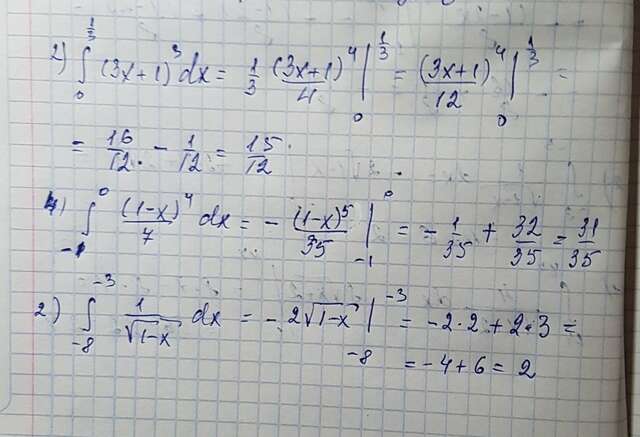 2) ∫₀^{1/3} (3x+1)³dx = 1/3 (3x+1)⁴/4 |₀^{1/3} = (3x+1)⁴/12 |₀^{1/3} =
= 16/12 - 1/12 = 15/12.
4) ∫₋₁⁰ (1-x)⁴/7 dx = - (1-x)⁵/35 |₋₁⁰ = - 1/35 + 32/35 = 31/35
2) ∫₋₈⁻³ 1/√(1-x) dx = - 2√(1-x) |₋₈⁻³ = -2·2 + 2·3 =
= -4 + 6 = 2